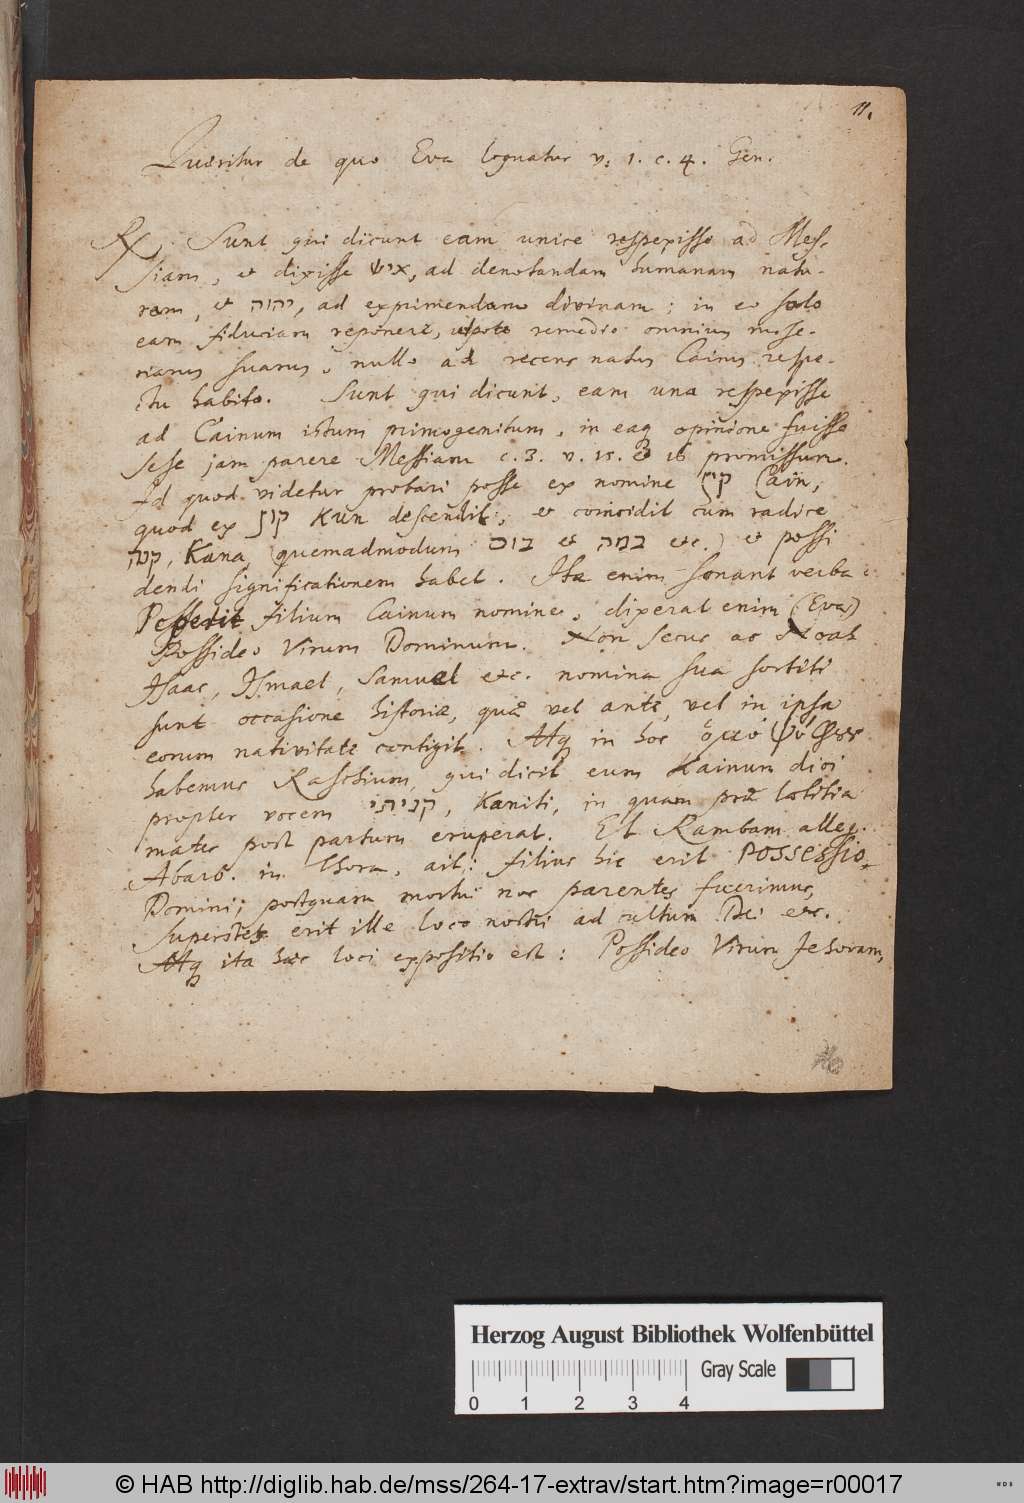 11.
Quæritur de quo Eva loquatur v: 1. c. 4. Gen.
Rx. Sunt qui dicunt eam unice respexisse ad Mes-
siam, et dixisse איש, ad denotandam humanam natu-
ram, et יהוה, ad exprimendam divinam; in eo solo
eam fiduciam reponere, utpote remedio omnium mise-
riarum suarum, nullo ad recens natum Cainum respe-
ctu habito. Sunt qui dicunt, eam una respexisse
ad Cainum istum primogenitum, in eaq opinione fuisse
sese jam parere Messiam c. 3. v. 15. & 16 promissum.
Id quod videtur probari posse ex nomine קין Cain,
quod ex קון Kun descendit, et coincidit cum radice
Kana (quemadmodum et במה etc.) et possi
dendi significationem habet. Ita enim sonant verba
filium Cainum nomine, dixerat enim (Eva)
Possideo Virum Dominum. Non secus ac Noah
Isaac, Ismael, Samuel etc. nomina sua sortiti
sunt occasione historiæ, quæ vel ante, vel in ipsa
eorum nativitate contigit. Atq in hoc
habemus Raschium, qui dicit eum Kainum dici
propter vocem קניתי, Kaniti, in quam præ lætitia
mater post partum eruperat. Et Rambam alleg.
Abarb. in Thora, ait: filius hic erit POSSESSIO
Domini; postquam mortui nos parentes fuerimus,
Superstes erit ille loco nostri ad cultum Dei etc.
Atq ita hæc loci expositio est: Possideo Virum Jehovam,
Herzog August Bibliothek Wolfenbüttel
Gray Scale
0 1 2 3 4
© HAB http://diglib.hab.de/mss/264-17-extrav/start.htm?image=r00017